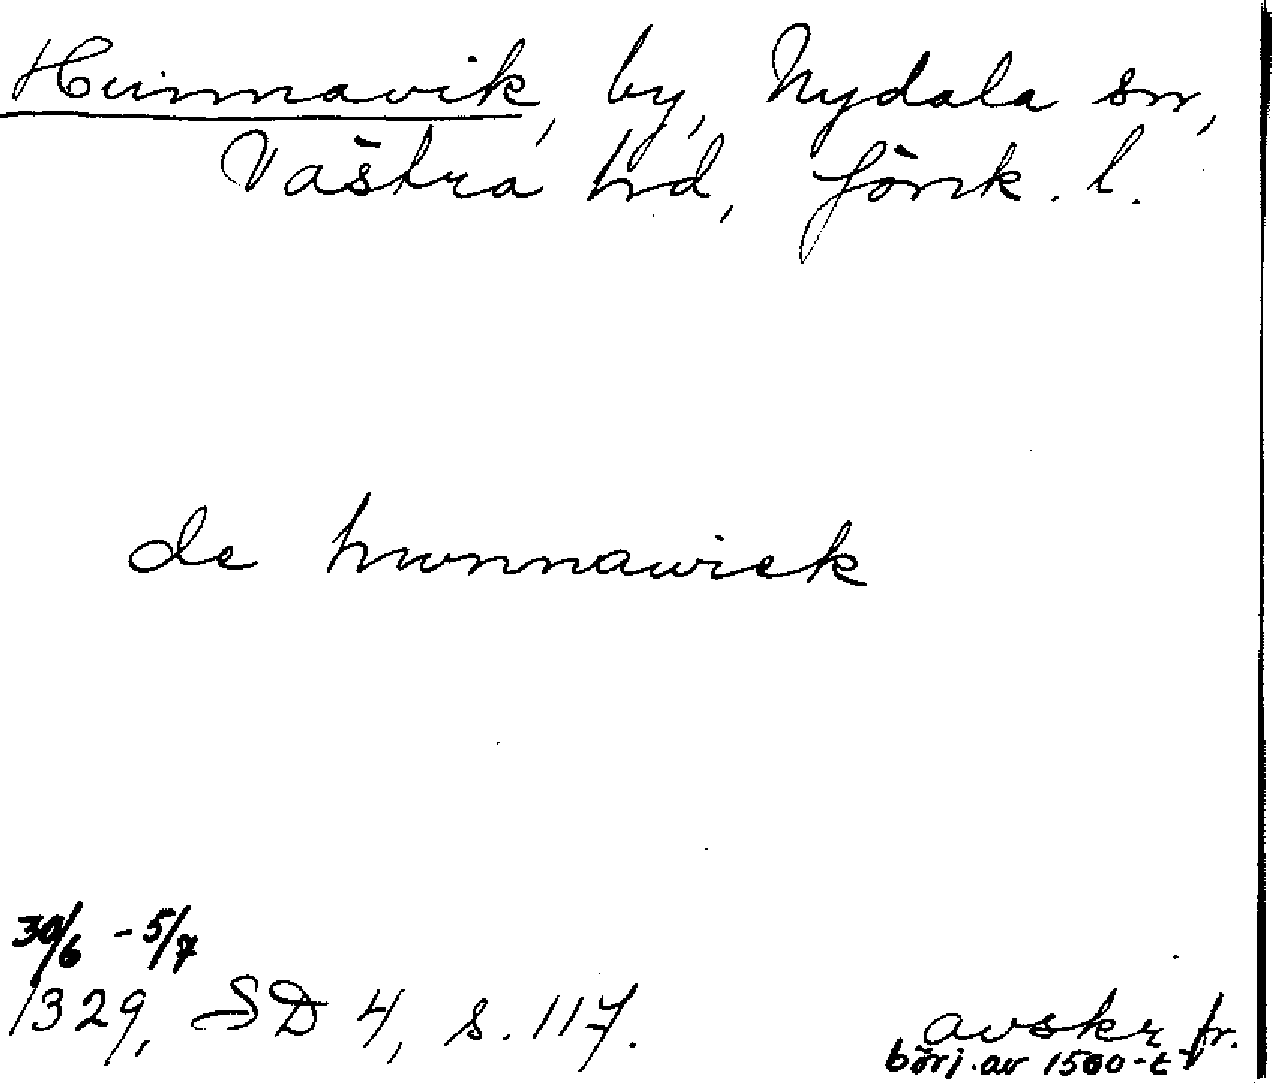 Hunnavik, by, Nydala sn,
Västra hd, Jönk. l.
de hwnnawick
30/6 - 5/7
1329, SD 4, s. 117.
avskr fr.
börj. av 1500-t